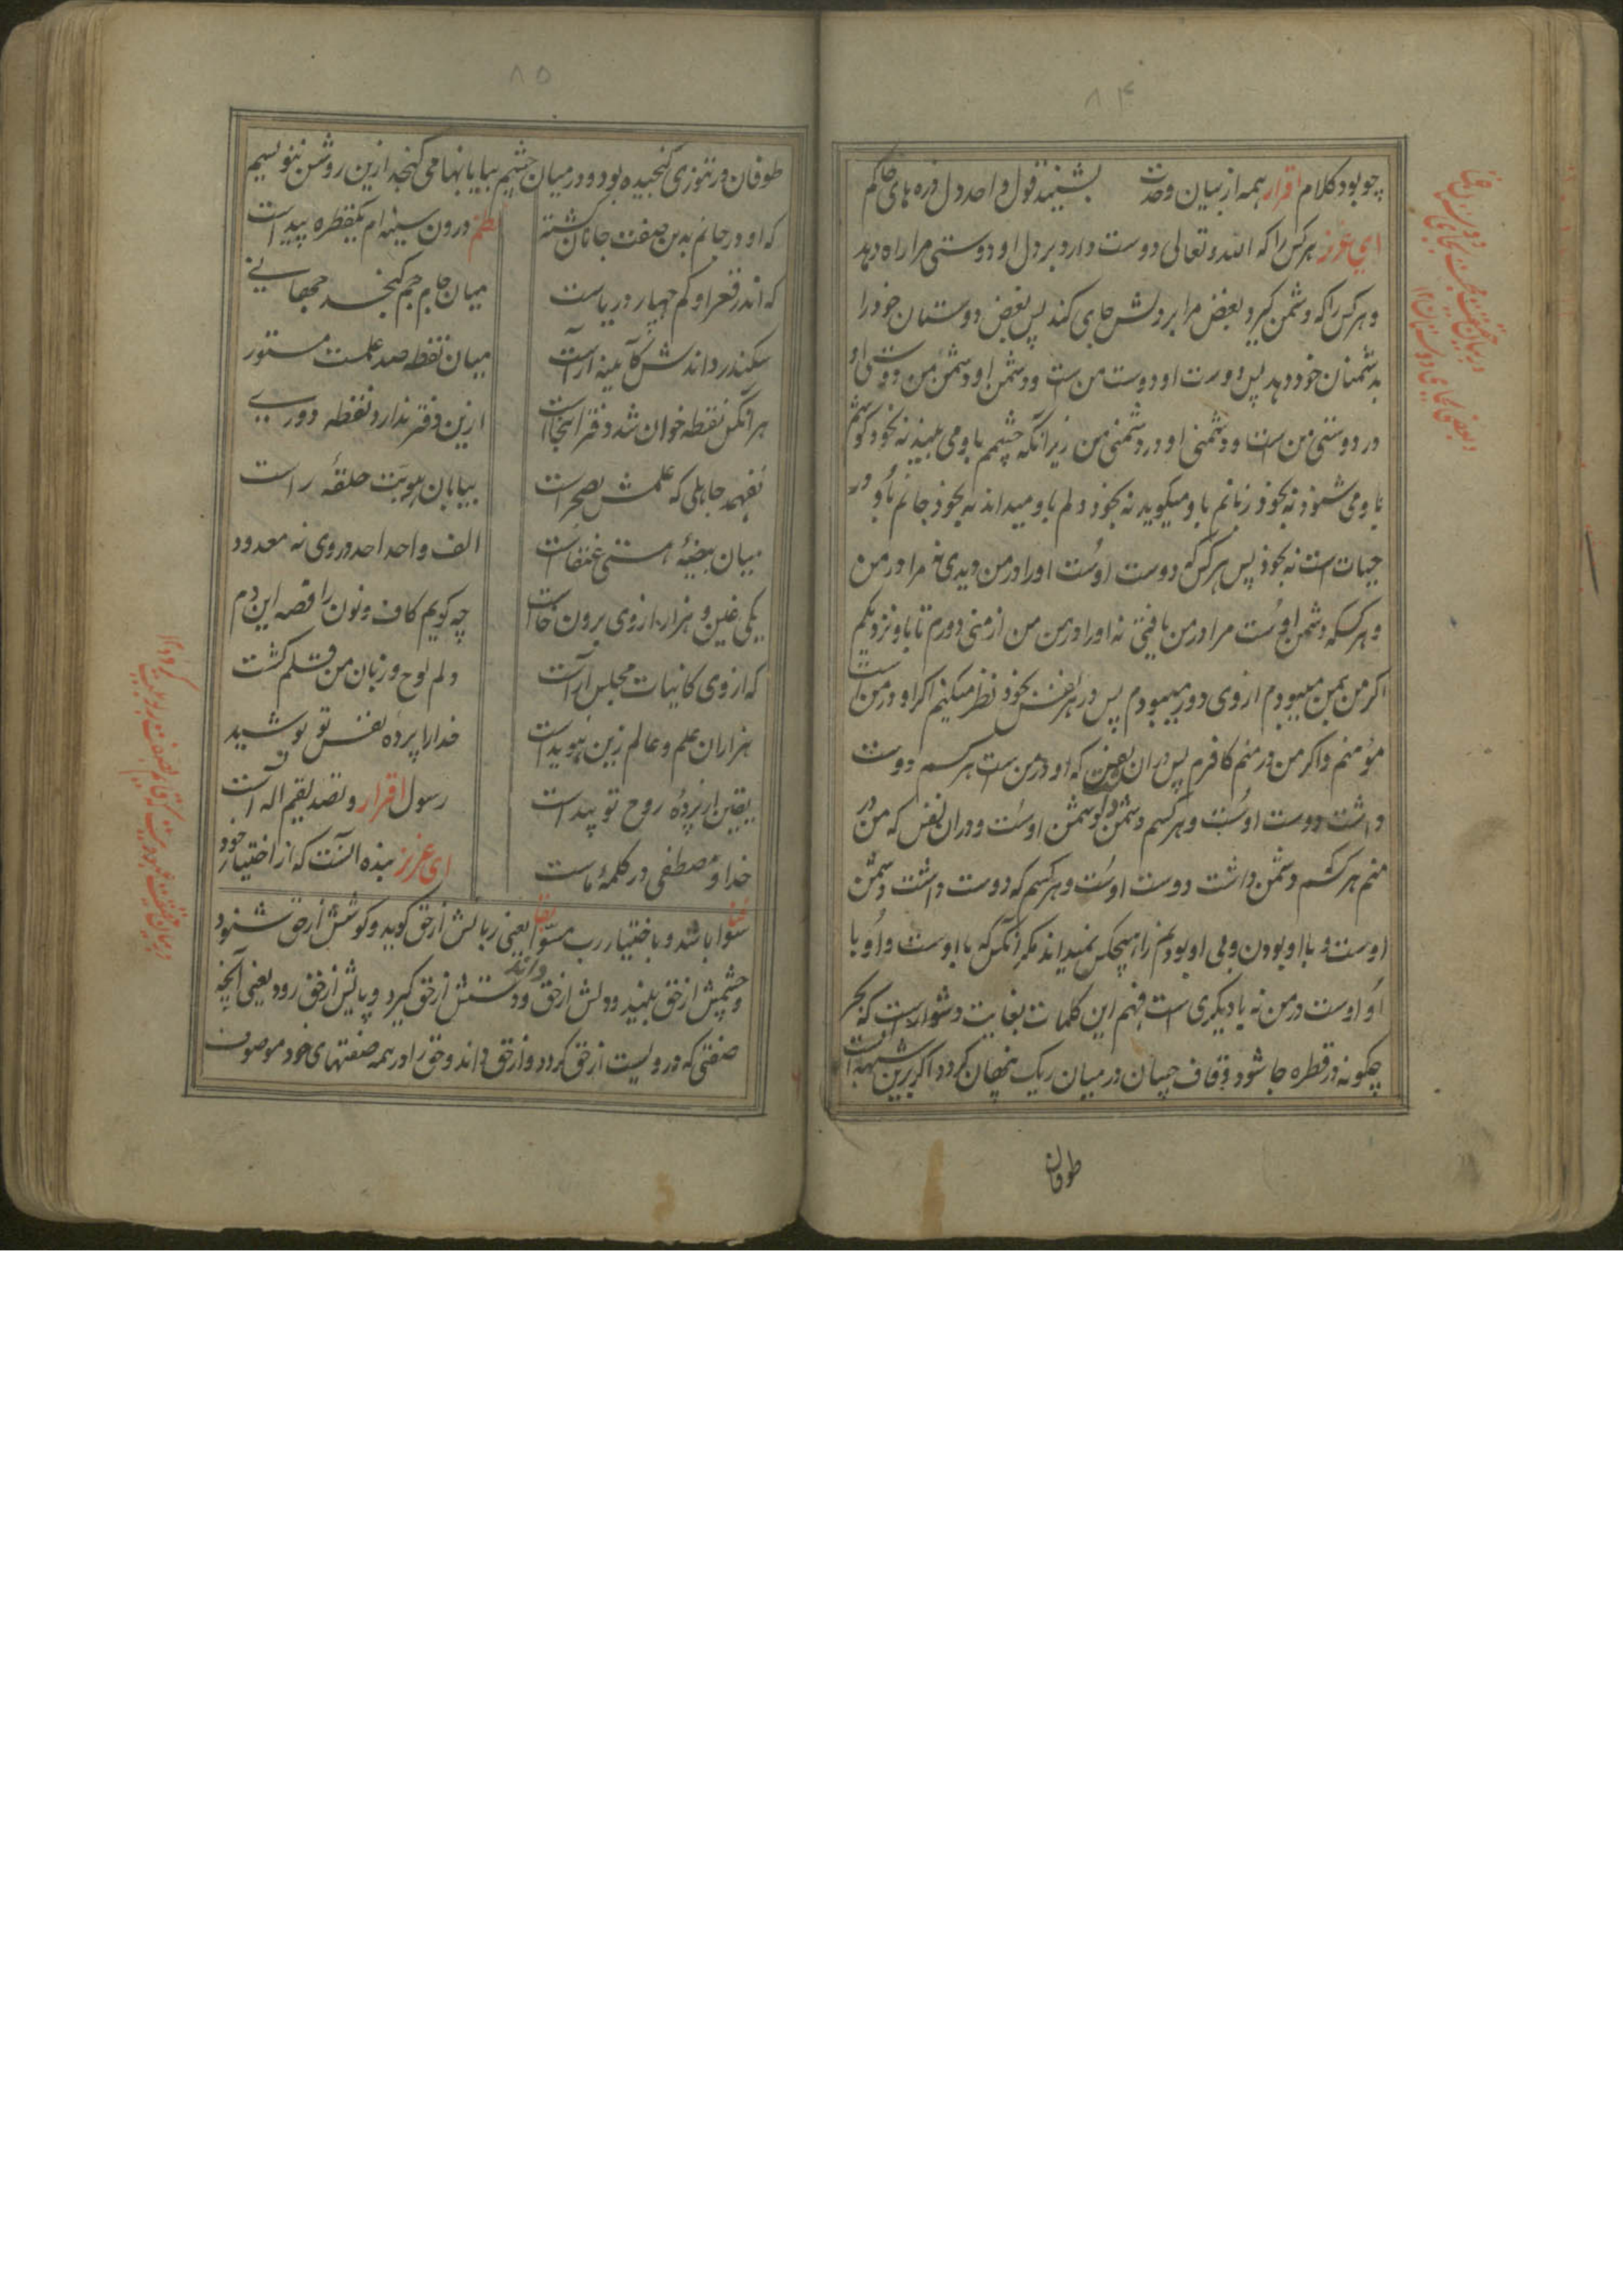 ۸۴
چو بود کلام اقرار همه از بیان وحدت بشنیند قول واحد دل ذره های خاکم
ای عزیز هر کس را که الله تعالی دوست دارد بر دل او دوستی مرا راه دهد
و هر کس را که دشمن گیرد بغض مرا بر دلش جای کند پس بغض دوستان خود را
بدشمنان خود دهد پس دوست او دوست من است و دشمن او دشمن من دوستی او
در دوستی من است و دشمنی او در دشمنی من زیرا که چشمم باو می بیند نه بخود گوشم
باو می شنود نه بخود زبانم باو میگوید نه بخود دلم باو میداند نه بخود جانم باو در
حیات است نه بخود پس هر کس که دوست اوست او را در من دیدی نه مرا در من
و هر کسکه دشمن اوست مرا در من یافتی نه او را در من من از منی دورم تا باو نزدیکم
اگر من بمن میبودم از وی دور میبودم پس در هر نفس بخود نظر میکنم اگر او در من است
مؤمنم و اگر من در منم کافرم پس در ان نفس که او در من است هر کسم دوست
داشت دوست اوست و هر کسم دشمن داشت دشمن اوست و در ان نفس که من در
منم هر کسم دشمن داشت دوست اوست و هر کسم که دوست داشت دشمن
اوست و با او بودن و بی او بودنم را هیچکس نمیداند مگر انکس که با اوست و او با
او اوست در من نه با دیگری است فهم این کلمات بغایت دشوار است که بحر
چگونه در قطره جا شود و قاف چسان در میان ریک پنهان گردد اگر برین شبهه است
طوفان
در بیان حقیقت محبت بجای
و بغض بجای دوستان ۱۲
۸۵
طوفان در تنوری گنجیده بود و در میان چشیم بیابانها می گنجد ازین روشن بنویسیم
که او در جانم بدین صفت جانان گشته نظم درون سینه ام یکقطره پیداست
که اندر قعر او کم چهار دریاست میان جام جم گنجد جهانی
سکندر داندش کآیینه آراست میان نقطه صد علمست مستور
هر آنکس نقطه خوان شد دفتر اینجاست ازین دفتر ندارد نقطه دوری
نفهمد جاهلی که علمش بصحراست بیابان هویت حلقهٔ راست
میان بیضهٔ هستی عنقاست الف واحد احد در وی نه معدود
یکی عین و هزار از وی برون خاست چه گویم کاف و نون را قصه این دم
که از وی کاینات مجلس آراست دلم لوح و زبان من قلم گشت
هزاران علم و عالم زین هویداست خدا را پرده نفس تو پوشید
یقین از پردهٔ روح تو پیداست رسول اقرار و تصدیقیم اله است
خدا و مصطفی در کلمهٔ ماست ای عزیز بنده انست که از اختیار خود
سوا باشد و باختیار رب مسوا یعنی زبانش از حق گوید و گوشش از حق شنود
و چشمش از حق بیند و دلش از حق داند و دستش از حق گیرد و پایش از حق رود یعنی آنچه
صفتی که در ویست از حق گردد و از حق داند و حق را در همه صفتهای خود موصوف